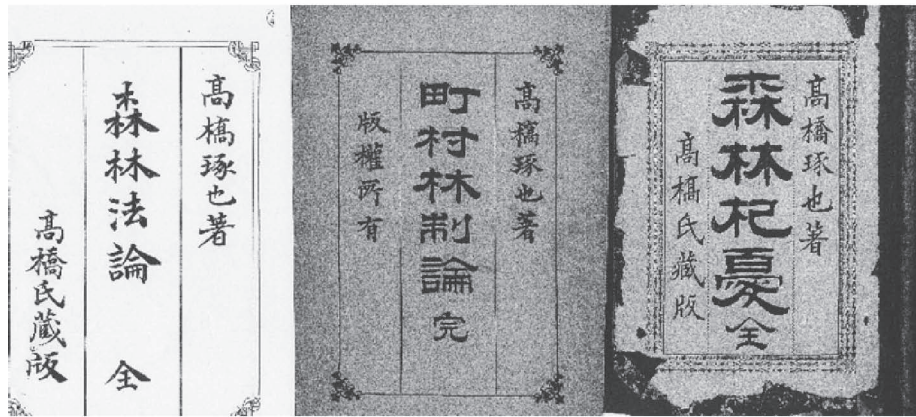 高橋琢也著
森林杞憂 全
高橋氏藏版
高橋琢也著
町村林制論 完
版權所有
高橋琢也著
森林法論 全
高橋氏藏版